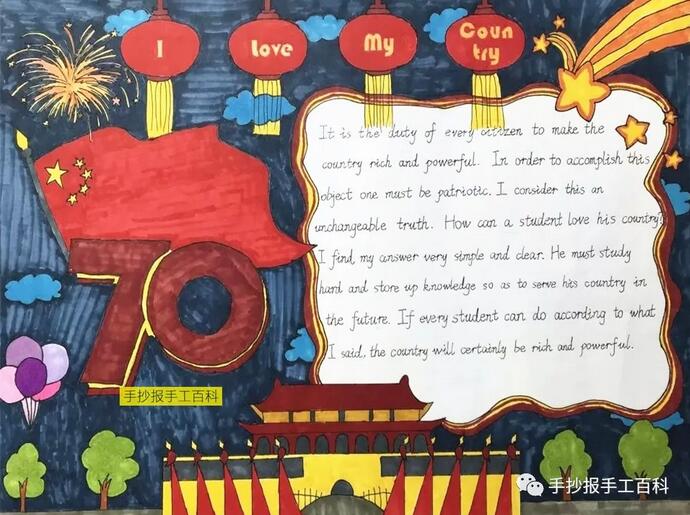 I
Love
My
Coun
try
It is the duty of every citizen to make the
country rich and powerful. In order to accomplish this
object one must be patriotic. I consider this an
unchangeable truth. How can a student love his country?
I find my answer very simple and clear. He must study
hard and store up knowledge so as to serve his country in
the future. If every student can do according to what
I said, the country will certainly be rich and powerful.
70
手抄报手工百科
手抄报手工百科